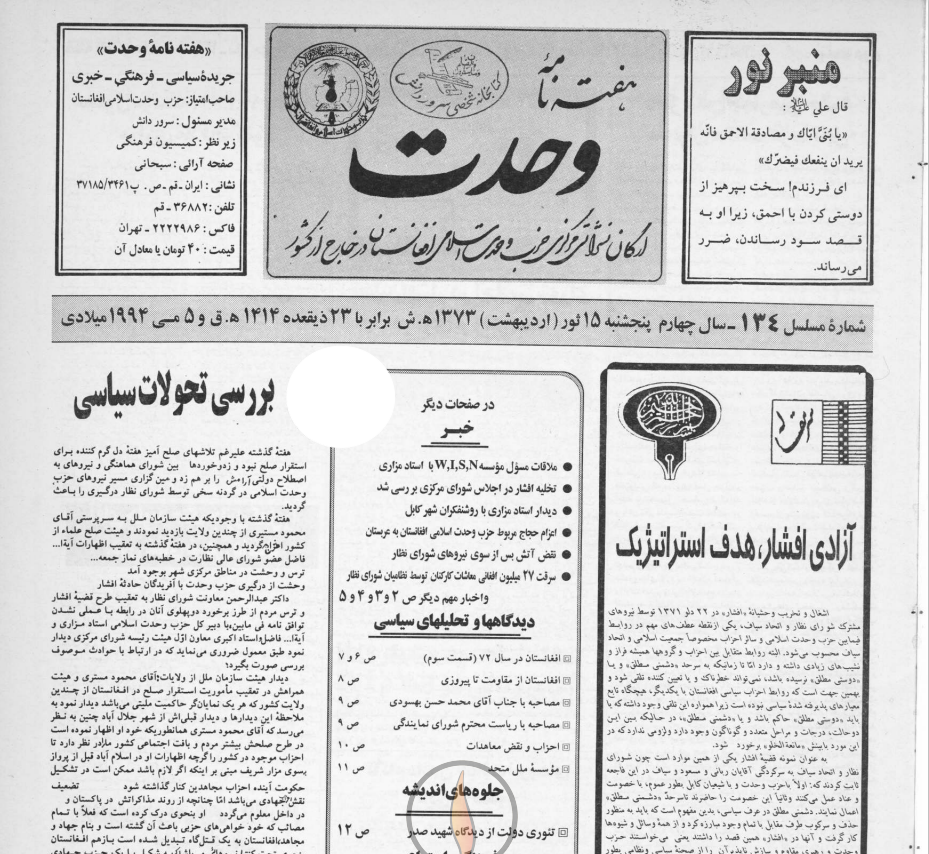 منبر نور
قال علي علیه السلام :
«یا بُنَیَّ ایّاك و مصادقة الاحق فانّه
یرید ان ینفعك فیضرّك»
ای فرزندم! سخت بپرهیز از
دوستی کردن با احمق، زیرا او به
قصد سود رساندن، ضرر
می‌رساند.
هفته نامه
وحدت
ارگان نشراتی مرکزی حزب وحدت اسلامی افغانستان در خارج از کشور
«هفته نامهٔ وحدت»
جریدهٔ سیاسی ـ فرهنگی ـ خبری
صاحب امتیاز: حزب وحدت اسلامی افغانستان
مدیر مسئول : سرور دانش
زیر نظر : کمیسیون فرهنگی
صفحه آرائی : سبحانی
نشانی : ایران ـ قم ـ ص. پ ۳۷۱۸۵/۳۴۶۱
تلفن : ۳۶۸۸۲ ـ قم
فاکس : ۲۲۲۲۹۸۶ ـ تهران
قیمت : ۴۰ تومان یا معادل آن
شمارهٔ مسلسل ۱۳۴ ـ سال چهارم پنجشنبه ۱۵ ثور (اردیبهشت) ۱۳۷۳ ه‍. ش برابر با ۲۳ ذیقعده ۱۴۱۴ ه‍. ق و ۵ مـی ۱۹۹۴ میلادی
سرمقاله
آزادی افشار، هدف استراتیژیک
اشغال و تخریب وحشیانهٔ «افشار» در ۲۲ دلو ۱۳۷۱ توسط نیروهای
مشترک شورای نظار و اتحاد سیاف، یکی از نقطه عطف‌های مهم در روابط
فیمابین حزب وحدت اسلامی و سائر احزاب مخصوصاً جمعیت اسلامی و اتحاد
سیاف محسوب می‌شود. البته روابط متقابل بین احزاب و گروهها همیشه فراز و
نشیب‌های زیادی داشته و دارد امّا تا زمانیکه به سرحد «دشمنی مطلق» و یا
«دوستی مطلق» نرسیده باشد، نمی‌تواند خطرناک و یا تعیین کننده تلقی شود و
بهمین جهت است که روابط احزاب سیاسی افغانستان با یکدیگر، هیچگاه تابع
معیارهای پذیرفته شدهٔ سیاسی نبوده است زیرا همواره این تلقی وجود داشته که یا
باید «دوستی مطلق» حاکم باشد و یا «دشمنی مطلق»، در حالیکه بین این
دو حالت، درجات و مراحل متعدد و گوناگون وجود دارد و لزومی ندارد که در
این مورد با بینش «مانعة‌الخلو» برخورد شود.
به عنوان نمونه قضیهٔ افشار یکی از همین موارد است چون شورای
نظار و اتحاد سیاف به سرکردگی آقایان ربانی و مسعود و سیاف در این فاجعه
ثابت کردند که: اولاً با حزب وحدت و با شیعیان کابل بطور عموم، با خصومت
و عناد عمل می‌کنند و ثانیاً این خصومت را حاضرند تا سرحدّ «دشمنی مطلق»
اعمال نمایند. دشمنی مطلق در عرف سیاسی، بدین مفهوم است که باید به منظور
حذف و سرکوب طرف مقابل با تمام وجود مبارزه کرد و از همهٔ وسائل و شیوه‌ها
کار گرفت و آنها در «افشار» همین قصد را داشتند یعنی می‌خواستند حزب
وحدت و رهبری مقاوم و سازش ناپذیر آن را از صحنهٔ سیاسی و نظامی بطور
در صفحات دیگر
خبر
● ملاقات مسؤل مؤسسه W,I,S,N با استاد مزاری
● تخلیه افشار در اجلاس شورای مرکزی بررسی شد
● دیدار استاد مزاری با روشنفکران شهر کابل
● اعزام حجاج مربوط حزب وحدت اسلامی افغانستان به عربستان
● نقض آتش بس از سوی نیروهای شورای نظار
● سرقت ۲۷ میلیون افغانی معاشات کارکنان توسط نظامیان شورای نظار
و اخبار مهم دیگر ص ۲ و ۳ و ۴ و ۵
دیدگاهها و تحلیلهای سیاسی
افغانستان در سال ۷۲ (قسمت سوم) ص ۶ و ۷
افغانستان از مقاومت تا پیروزی ص ۸
مصاحبه با جناب آقای محمد حسن بهسودی ص ۹
مصاحبه با ریاست محترم شورای نمایندگی ص ۹
احزاب و نقض معاهدات ص ۱۰
مؤسسهٔ ملل متحد ص ۱۱
جلوه‌های اندیشه
تئوری دولت از دیدگاه شهید صدر ص ۱۲
بررسی تحولات سیاسی
هفتهٔ گذشته علیرغم تلاشهای صلح آمیز هفتهٔ دل گرم کننده برای
استقرار صلح نبود و زدوخوردها بین شورای هماهنگی و نیروهای به
اصطلاح دولتی آرامش را بر هم زد و مین گزاری مسیر نیروهای حزب
وحدت اسلامی در گردنه سخی توسط شورای نظار درگیری را باعث
گردید.
هفتهٔ گذشته با وجودیکه هیئت سازمان ملل به سرپرستی آقای
محمود مستیری از چندین ولایت بازدید نمودند و هیئت صلح علماء از
کشور اخراج گردید و همچنین، در هفتهٔ گذشته به تعقیب اظهارات آیةا...
فاضل عضو شورای عالی نظارت در خطبه‌های نماز جمعه...
ترس و وحشت در مناطق مرکزی شهر بوجود آمد
وحشت از درگیری حزب وحدت با آفریدگان حادثهٔ افشار
داکتر عبدالرحمن معاونت شورای نظار به تعقیب طرح قضیهٔ افشار
و ترس مردم از طرز برخورد دوپهلوی آنان در رابطه با عملی نشدن
توافق نامه فی مابین، با دبیر کل حزب وحدت اسلامی استاد مزاری و
آیةا... فاضل و استاد اکبری معاون اوّل هیئت رئیسه شورای مرکزی دیدار
نمود طبق معمول ضروری می‌نماید که در ارتباط با حوادث موصوف
بررسی صورت بگیرد؟
دیدار هیئت سازمان ملل از ولایات؛ آقای محمود مستری و هیئت
همراهش در تعقیب مأموریت استقرار صلح در افغانستان از چندین
ولایت کشور که هر یک نمایانگر حاکمیت ملیتی می‌باشد دیدار نمود به
ملاحظهٔ این دیدارها و دیدار قبلی‌اش از شهر جلال آباد چنین به نظر
می‌رسد که آقای محمود مستری همانطوریکه خود او اظهار نموده است
در طرح صلحش بیشتر مردم و بافت اجتماعی کشور را در نظر دارد تا
احزاب موجود در کشور را گرچه اظهارات او در اسلام آباد قبل از پرواز
بسوی مزار شریف مبنی بر اینکه اگر لازم باشد ممکن است در تشکیل
حکومت آینده احزاب مجاهدین کنار گذاشته شود تضعیف
نقش جهادی می‌باشد امّا چنانچه از روند مذاکراتش در پاکستان و
در داخل معلوم می‌گردد او بنحوی درک کرده است که فعلاً با تمام
مصائب که خود خواهی‌های حزبی باعث آن گشته است و بنام جهاد و
مجاهد، افغانستان به یک قتلگاه تبدیل شده است باز هم افغانستان